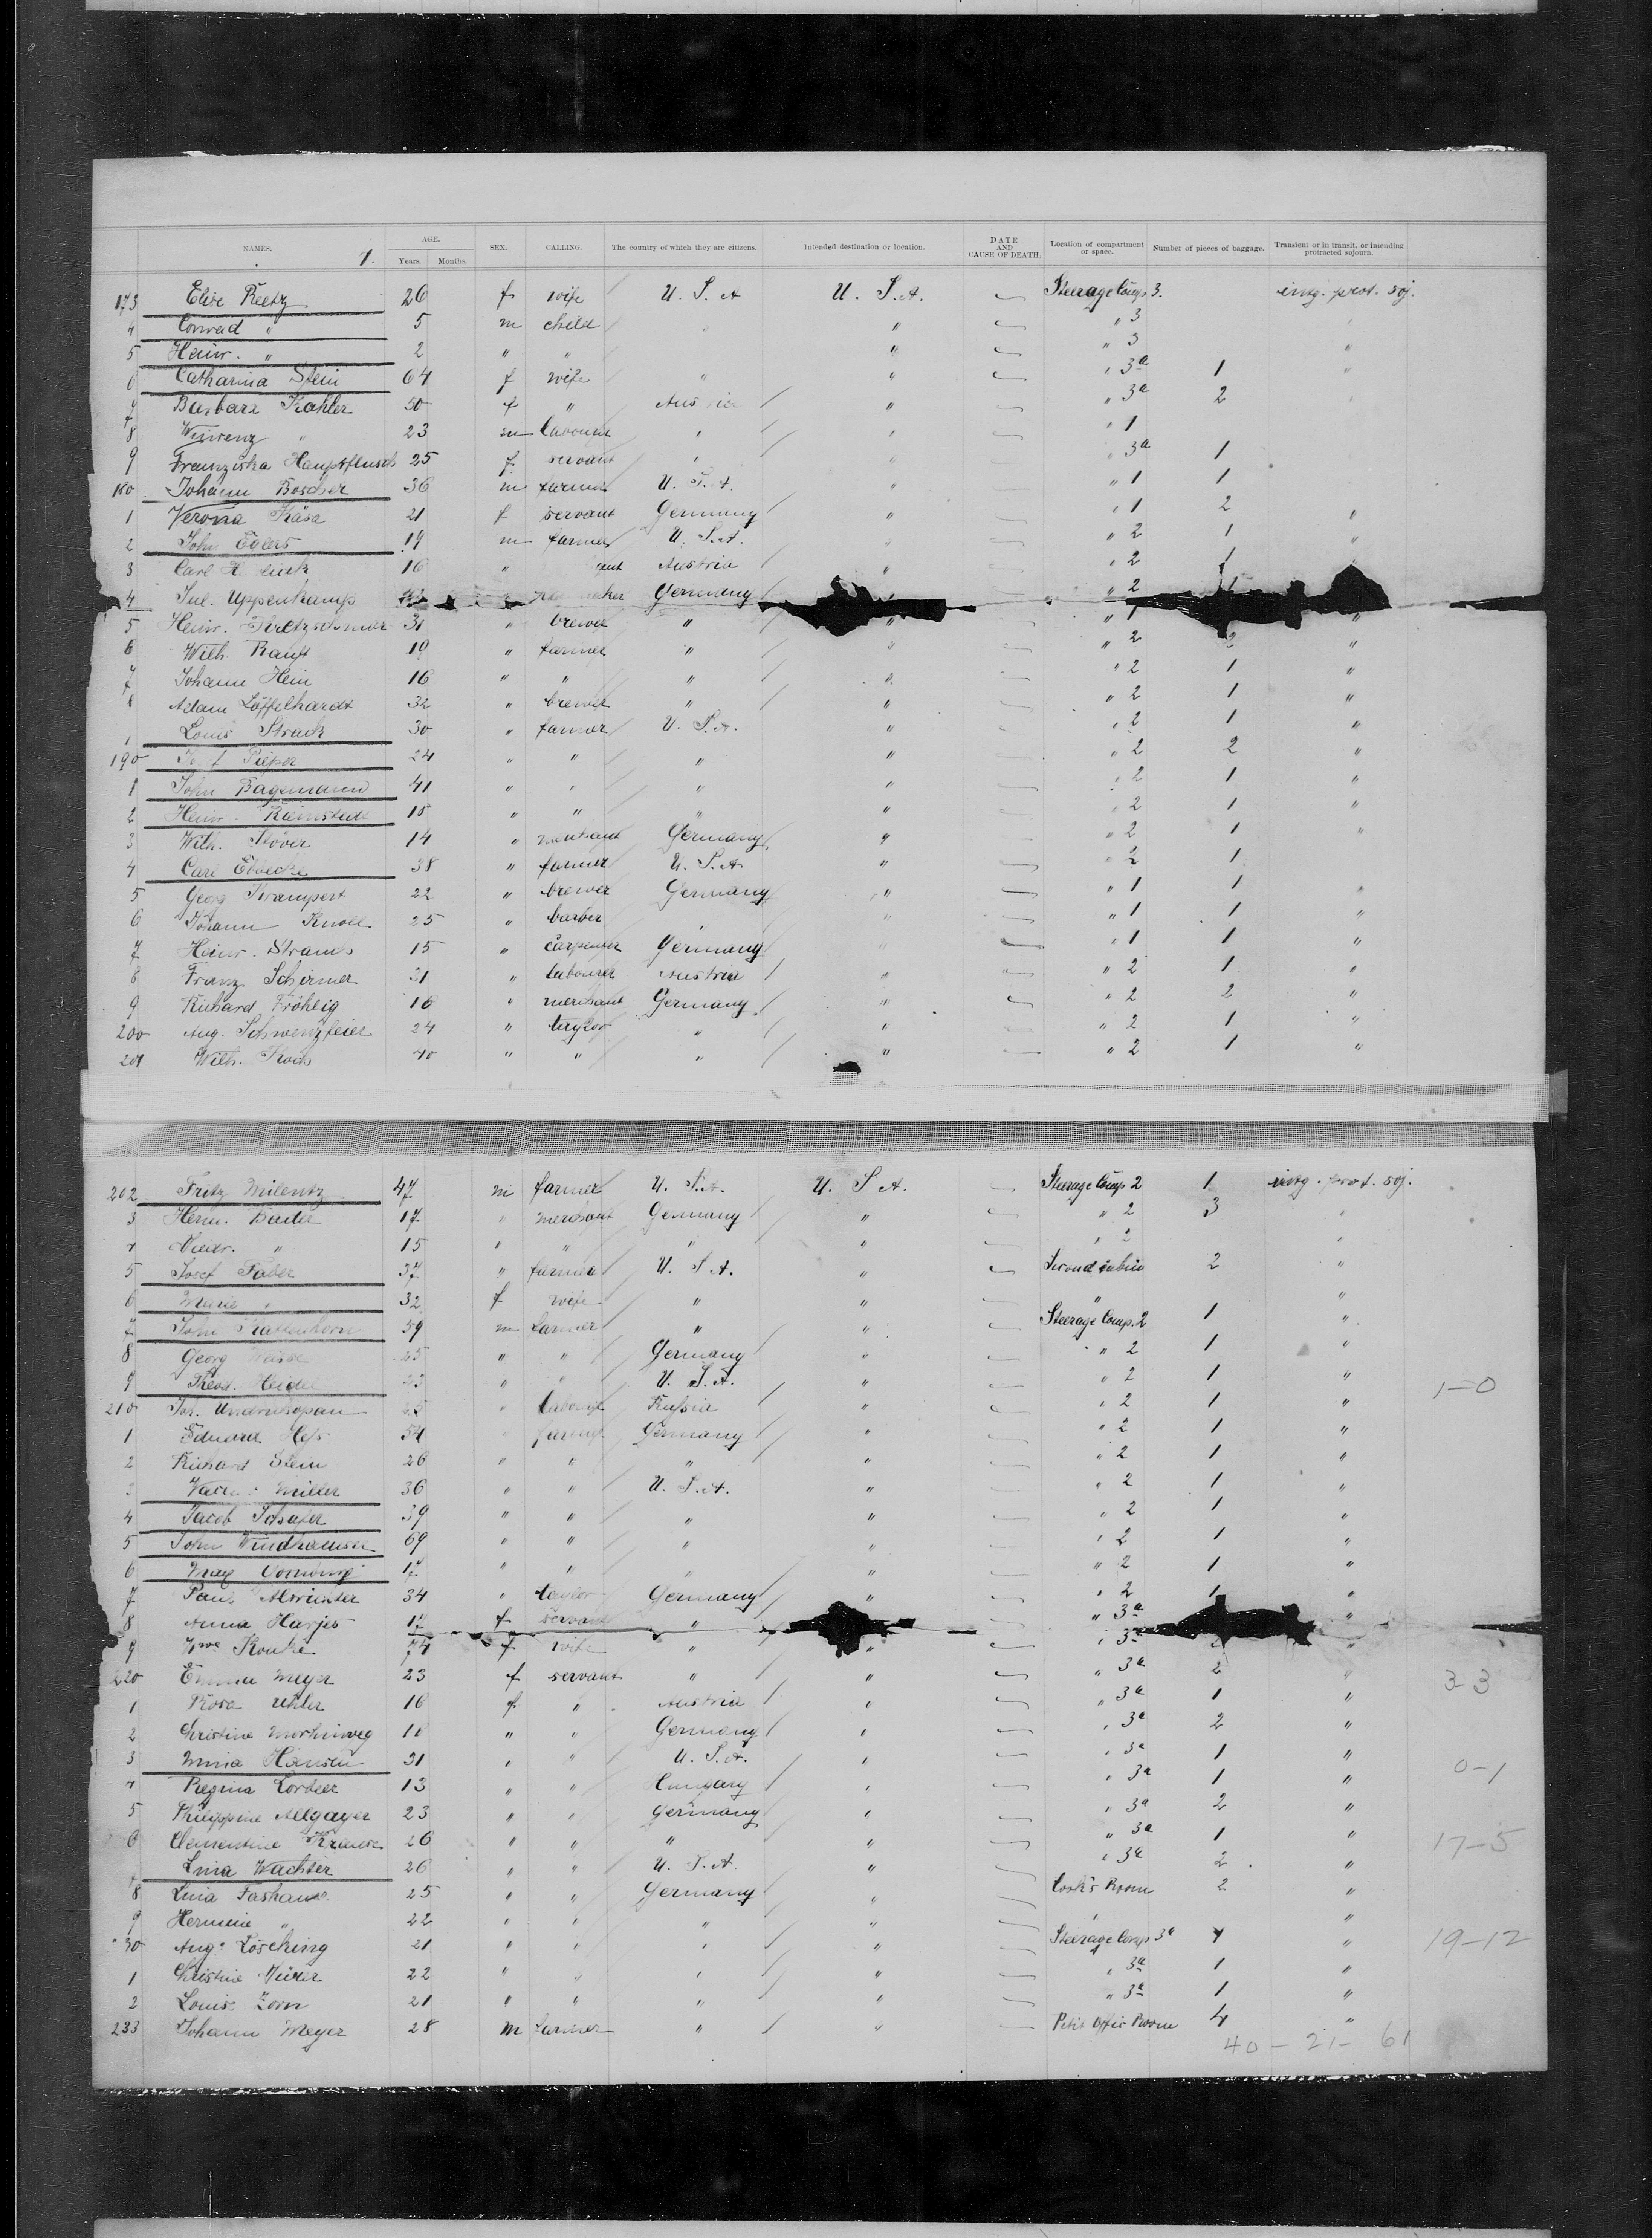 NAMES. 1. AGE. Years. Months. SEX. CALLING. The country of which they are citizens. Intended destination or location. DATE AND CAUSE OF DEATH. Location of compartment or space. Number of pieces of baggage. Transient or in transit, or intending protracted sojourn.
173 Elise Reetz 26 f wife U. S. A U. S. A. Steerage Comp 3. intg. prot. soj.
4 Conrad " 5 m child " " " 3 "
5 Heinr. " 2 " " " " 3 "
6 Catharina Stein 64 f wife " " " 3a 1 "
7 Barbara Kahler 50 f " Aus ria " " 3a 2
8 " 23 m labourer " " " 1
9 Franziska 25 f servant " " " 3a 1
180 Johann Boscher 36 m farmer U. S. A. " " 1 1
1 Verona Käsa 21 f servant Germany " " 1 2 "
2 John Eglers 19 m farmer U. S. A. " " 2 1 "
3 Carl 16 " Austria " " 2 1
4 Jul. Uppenkamp Germany " 2 1
5 Heinr. Kretzschmar 31 " brewer " " " 1 "
6 Wilh. Rauft 19 " farmer " " " 2 2 "
7 Johann Hein 16 " " " " " 2 1 "
8 Adam Löffelhardt 32 " brewer " " " 2 1 "
Louis Struck 30 " farmer U. S. A. " " 2 1 "
190 Pieper 24 " " " " " 2 2 "
1 John Bagemann 41 " " " " " 2 1 "
2 Heinr. 15 " " " " " 2 1 "
3 Wilh. Stöver 14 " merchant Germany " " 2 1 "
4 Carl Ebbecke 38 " farmer U. S. A " " 2 1
5 Georg Krampert 22 " brewer Germany " " 1 1 "
6 Johann Knoll 25 " barber " " " 1 1 "
7 Heinr. Strauss 15 " carpenter Germany " " 1 1 "
8 Franz Schirmer 31 " labourer Austria " " 2 1 "
9 Richard Fröhlig 18 " merchant Germany " " 2 2 "
200 Aug. Schwenzfeier 24 " taylor " " " 2 1 "
201 Wilh. Koch 40 " " " " " 2 1 "
202 Fritz Milentz 47 m farmer U. S. A. U. S A. Steerage Comp 2 1 intg. prot. soj.
3 Herm. Bader 17 " merchant Germany " " 2 3 "
4 " 15 " " " " " 2 "
5 Josef Faber 37 " farmer U. S A. " Second cabin 2 "
6 Marie " 32 f wife " " " "
7 John Kattenhorn 59 m farmer " " Steerage Comp. 2 1 "
8 Georg 25 " " Germany " " 2 1 "
9 Theod. Heide 23 " " U. S. A. " " 2 1 " 1-0
210 Joh. labourer Russia " " 2 1 "
1 Eduard Hess 54 " farmer Germany " " 2 1 "
2 Richard Stein 26 " " " " " 2 1 "
Miller 36 " " U. S. A. " " 2 1 "
4 Jacob Schafer 39 " " " " " 2 1 "
5 John Windhausen 69 " " " " " 2 1 "
6 17 " " " " " 2 1 "
7 Paul 34 " taylor Germany " " 2 1 "
8 Anna Harjes 17 f servant " " 3a "
9 Wwe 74 f wife " " " 3a "
220 Emma Meyer 23 f servant " " " 3a 2 " 3-3
1 Rosa Uhler 16 f " Austria " " 3a 1 "
2 Christine 18 " " Germany " " 3a 2 "
3 Mina Hansen 31 " " U. S. A. " " 3a 1 " 0-1
4 Regina Lorbeer 13 " " Hungary " " 3a 1 "
5 Philippine Allgayer 23 " " Germany " " 3a 2 "
6 Clementine Krause 26 " " " " " 3a 1 " 17-5
Lina Wachter 26 " " U. S. A. " " 3a 2 "
8 Lina 25 " " Germany " Cook's Room 2 "
9 Hermine " 22 " " " " " "
30 Auge Lösching 21 " " " " Steerage Comp 3a 4 " 19-12
1 Christine Meier 22 " " " " " 3a 1 "
2 Louise Zorn 21 " " " " " 3a 1 "
233 Johann Meyer 28 m farmer " " Petit Offic Room 4 "
40 - 21 - 61